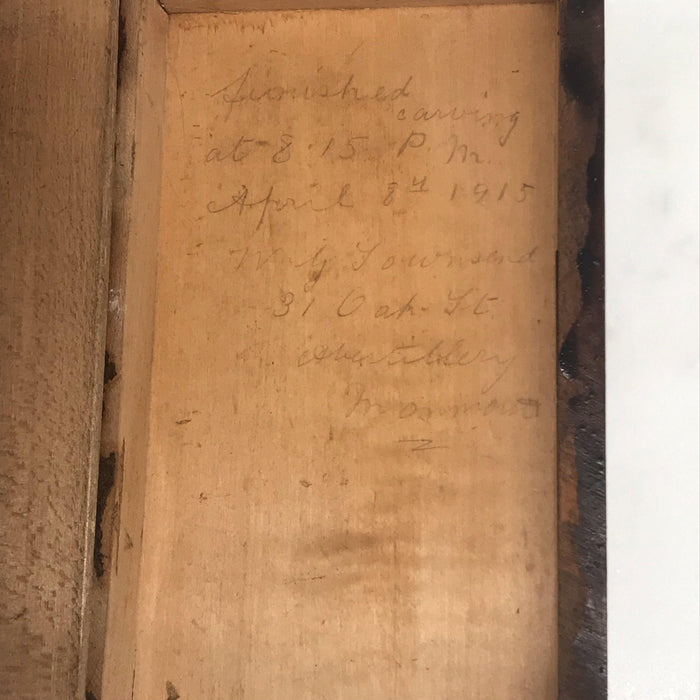 finished
carving
at 8.15 P.M.
April 8th 1915
W. G. Townsend
31 Oak St
Abertillery
Monmouth